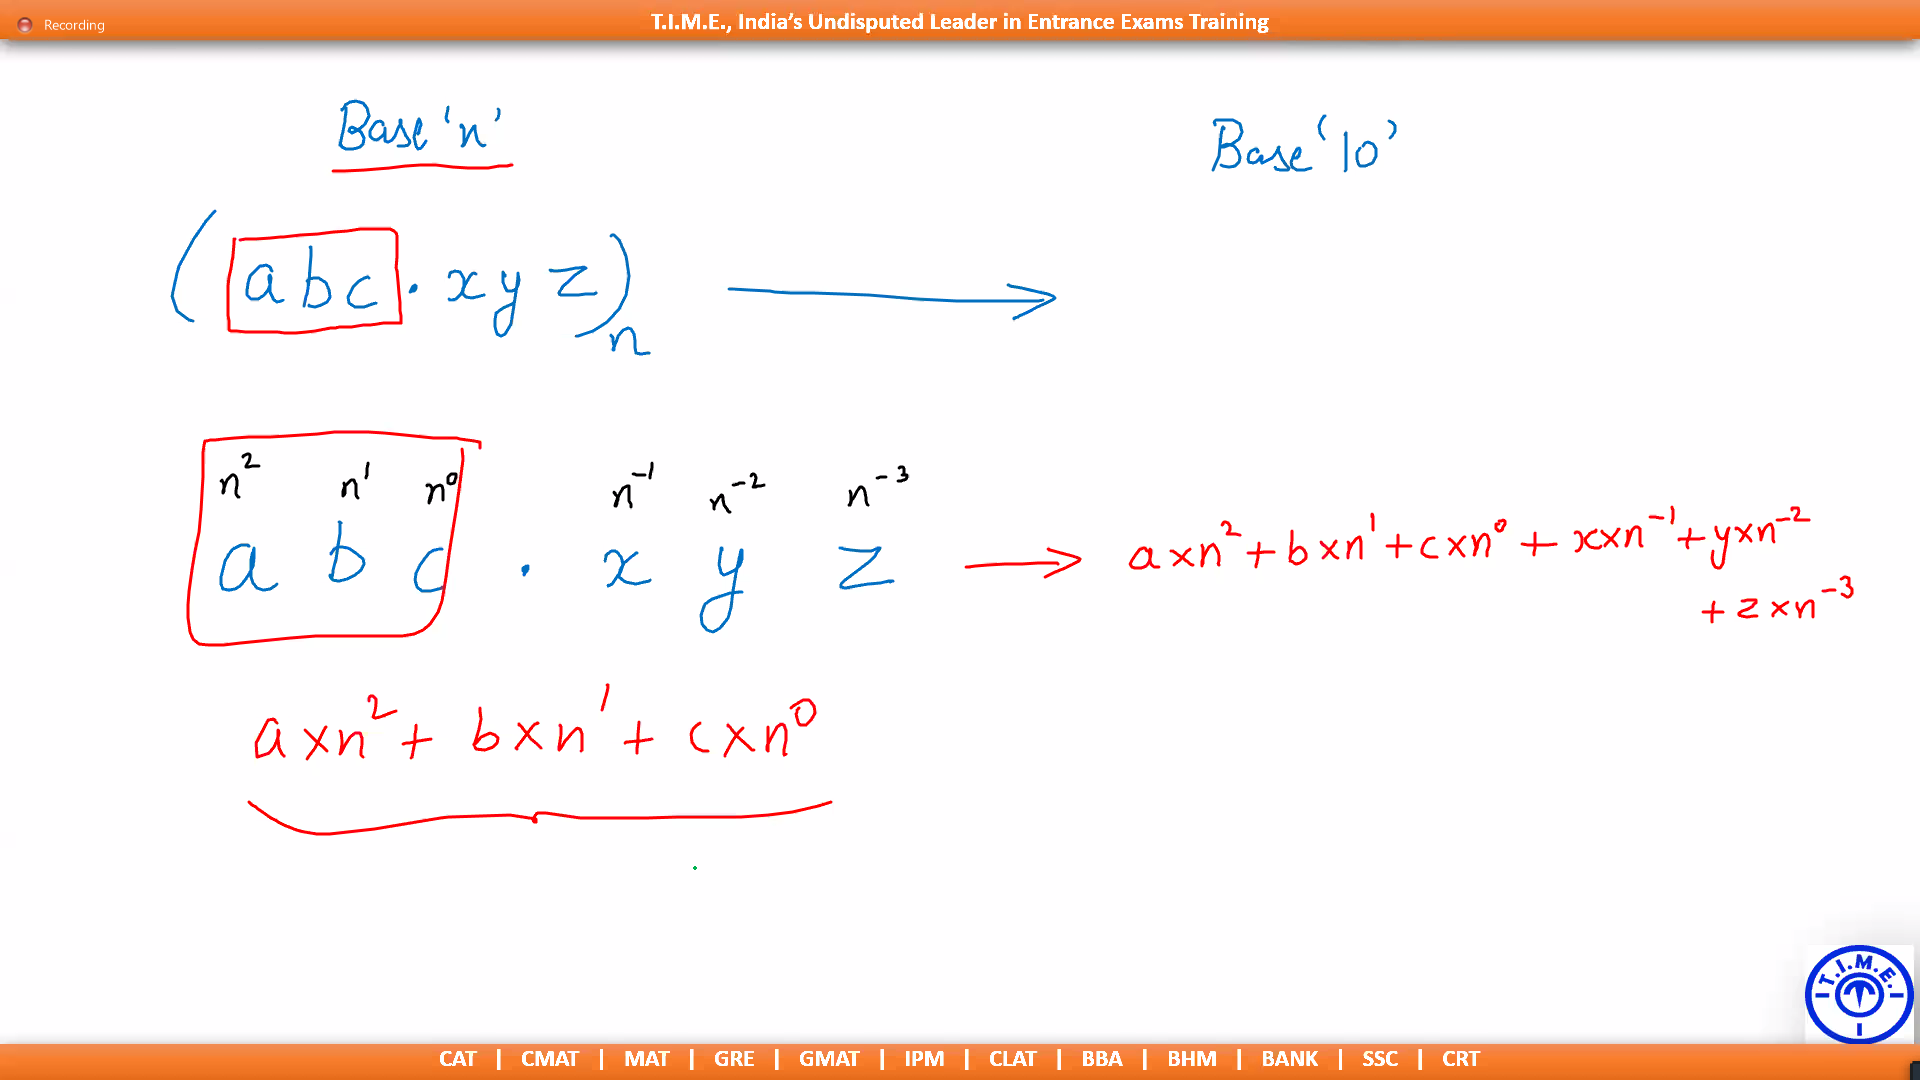 Recording
T.I.M.E., India's Undisputed Leader in Entrance Exams Training
Base 'n'
Base '10'
(abc.xyz)n
n² n¹ n⁰ n⁻¹ n⁻² n⁻³
a b c . x y z → a×n²+b×n¹+c×n⁰+x×n⁻¹+y×n⁻²
+z×n⁻³
a×n²+b×n¹+c×n⁰
T.I.M.E.
CAT | CMAT | MAT | GRE | GMAT | IPM | CLAT | BBA | BHM | BANK | SSC | CRT